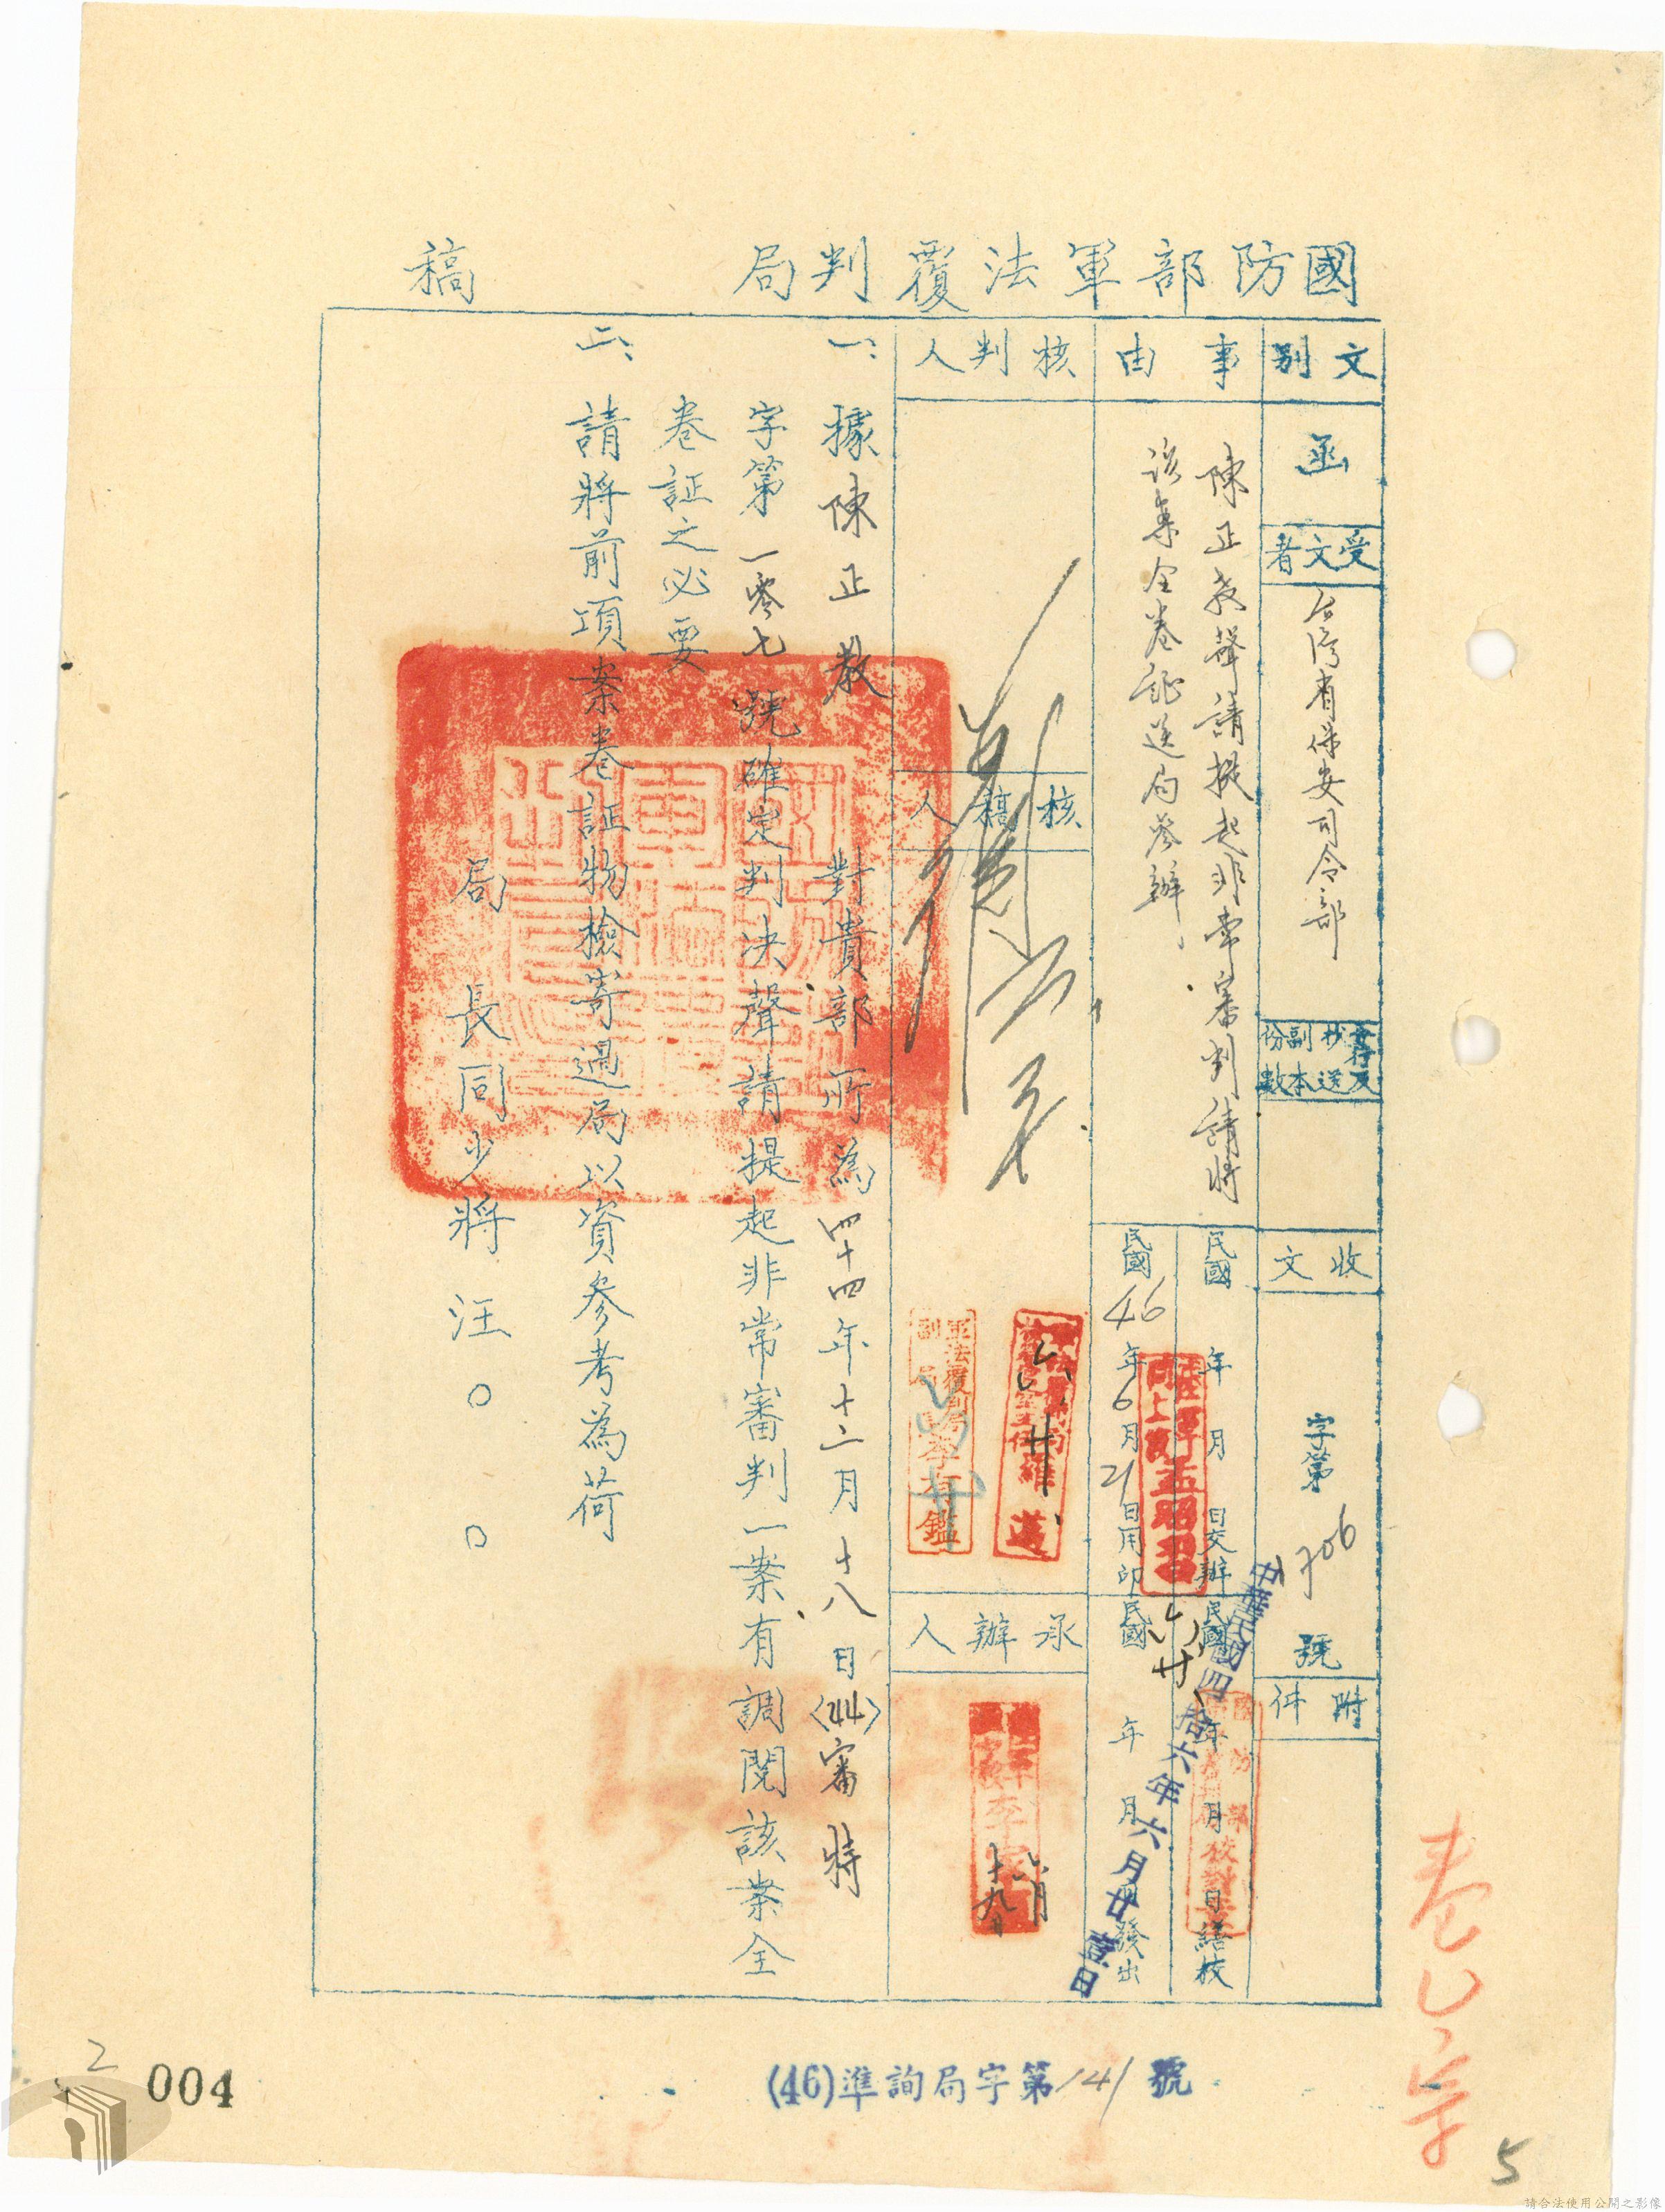 國防部軍法覆判局　稿
文別
函
受文者
台灣省保安司令部
抄送副本份數
收文
字第706號
附件
事由
陳正教聲請提起非常審判請將
該案全卷証送局參辦
民國　年　月　日交辦
民國　年　月　日繕校
民國46年6月21日用印
民國　年　月　日發出
中華民國四拾六年六月廿壹日
核判人
核稿人
承辦人
六月十九日
一、據陳正教對貴部所為四十四年十二月十八日(44)審特
字第一零七號確定判決聲請提起非常審判一案有調閱該案全
卷証之必要
二、請將前項案卷証物檢寄過局以資參考為荷
局長同少將汪○○
(46)準詢局字第141號
004
2
5
請合法使用公開之影像